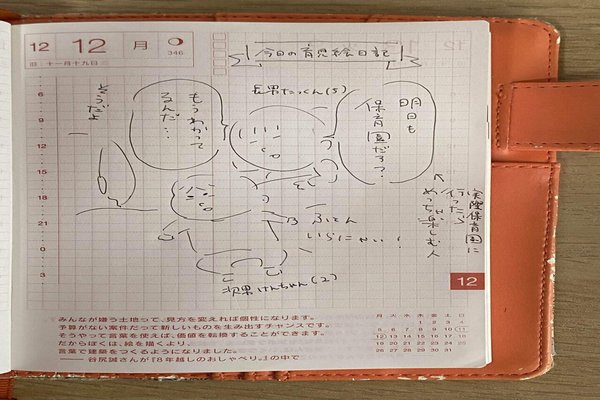 12 12 月
346
旧:十一月十九日
今日の育児絵日記
長男たっくん(5)
明日も
保育園だろ?
もうわかって
るんだ…
そうだよ
実際保育園に
行ったら
めっちゃ楽しむ人
ふとん
いらにゃい!
次男けんちゃん(2)
6
9
12
15
18
21
0
3
12
みんなが嫌う土地って、見方を変えれば個性になります。
予算がない案件だって新しいものを生み出すチャンスです。
そうやって言葉を使えば、価値を転換することができます。
だからぼくは、絵を描くより、
言葉で建築をつくるようになりました。
――谷尻誠さんが『8年越しのおしゃべり。』の中で
月 火 水 木 金 土 日
1 2 3 4
5 6 7 8 9 10 11
12 13 14 15 16 17 18
19 20 21 22 23 24 25
26 27 28 29 30 31